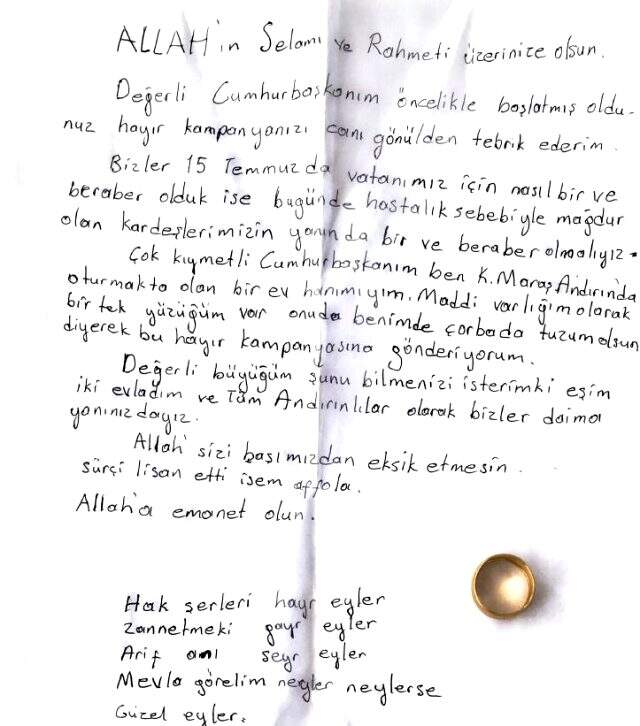 ALLAH'ın Selamı ve Rahmeti üzerinize olsun.
Değerli Cumhurbaşkanım öncelikle başlatmış oldu-
nuz hayır kampanyanızı canı gönülden tebrik ederim.
Bizler 15 Temmuzda vatanımız için nasıl bir ve
beraber olduk ise bugünde hastalık sebebiyle mağdur
olan kardeşlerimizin yanında bir ve beraber olmalıyız.
Çok kıymetli Cumhurbaşkanım ben K.Maraş Andırında
oturmakta olan bir ev hanımıyım. Maddi varlığım olarak
bir tek yüzüğüm var onuda benimde çorbada tuzum olsun
diyerek bu hayır kampanyasına gönderiyorum.
Değerli büyüğüm şunu bilmenizi isterimki eşim
iki evladım ve Tüm Andırınlılar olarak bizler daima
yanınızdayız.
Allah sizi başımızdan eksik etmesin.
sürçi lisan etti isem affola.
Allah'a emanet olun.
Hak şerleri hayr eyler
Zannetmeki gayr eyler
Arif anı seyr eyler
Mevla görelim neyler neylerse
Güzel eyler.